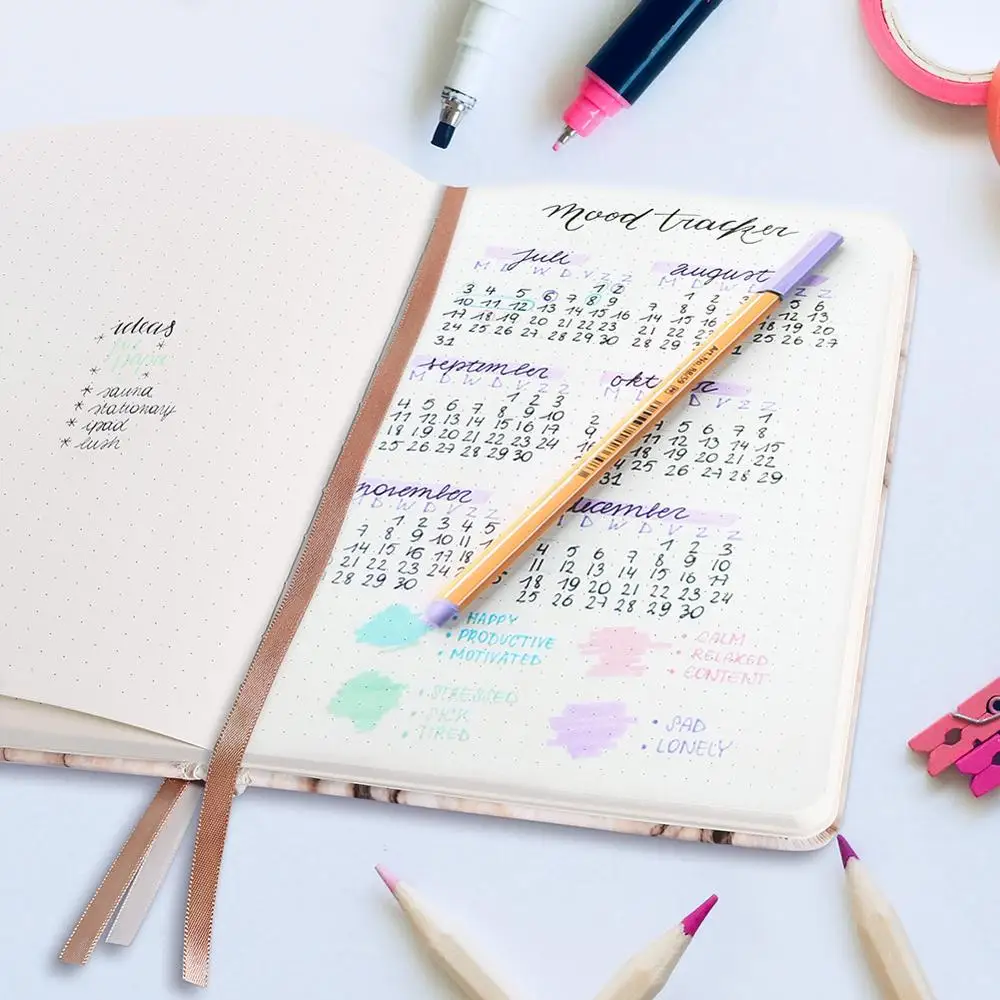 ideas
papa
* sauna
* stationary
* ipad
* lush
mood tracker
juli
M D W D V Z Z
1 2
3 4 5 6 7 8 9
10 11 12 13 14 15 16
17 18 19 20 21 22 23
24 25 26 27 28 29 30
31
august
M D W D Z Z
1 2 3 5 6
7 8 9 12 13
14 15 16 19 20
21 22 23 25 26 27
28 29 30
september
M D W D V Z Z
1 2 3
4 5 6 7 8 9 10
11 12 13 14 15 16 17
18 19 20 21 22 23 24
25 26 27 28 29 30
okt er
M D W D V Z Z
1
2 5 6 7 8
9 11 12 13 14 15
18 19 20 21 22
24 25 26 27 28 29
31
november
D W D V Z
1 2 3 4 5
7 8 9 10 11
14 15 16 17 18
21 22 23 24
28 29 30
december
D W D V Z Z
1 2 3
4 5 6 7 8 9 10
11 12 13 14 15 16 17
18 19 20 21 22 23 24
25 26 27 28 29 30
• HAPPY
• PRODUCTIVE
• MOTIVATED
• CALM
• RELAXED
• CONTENT
• STRESSED
• SICK
• TIRED
• SAD
• LONELY